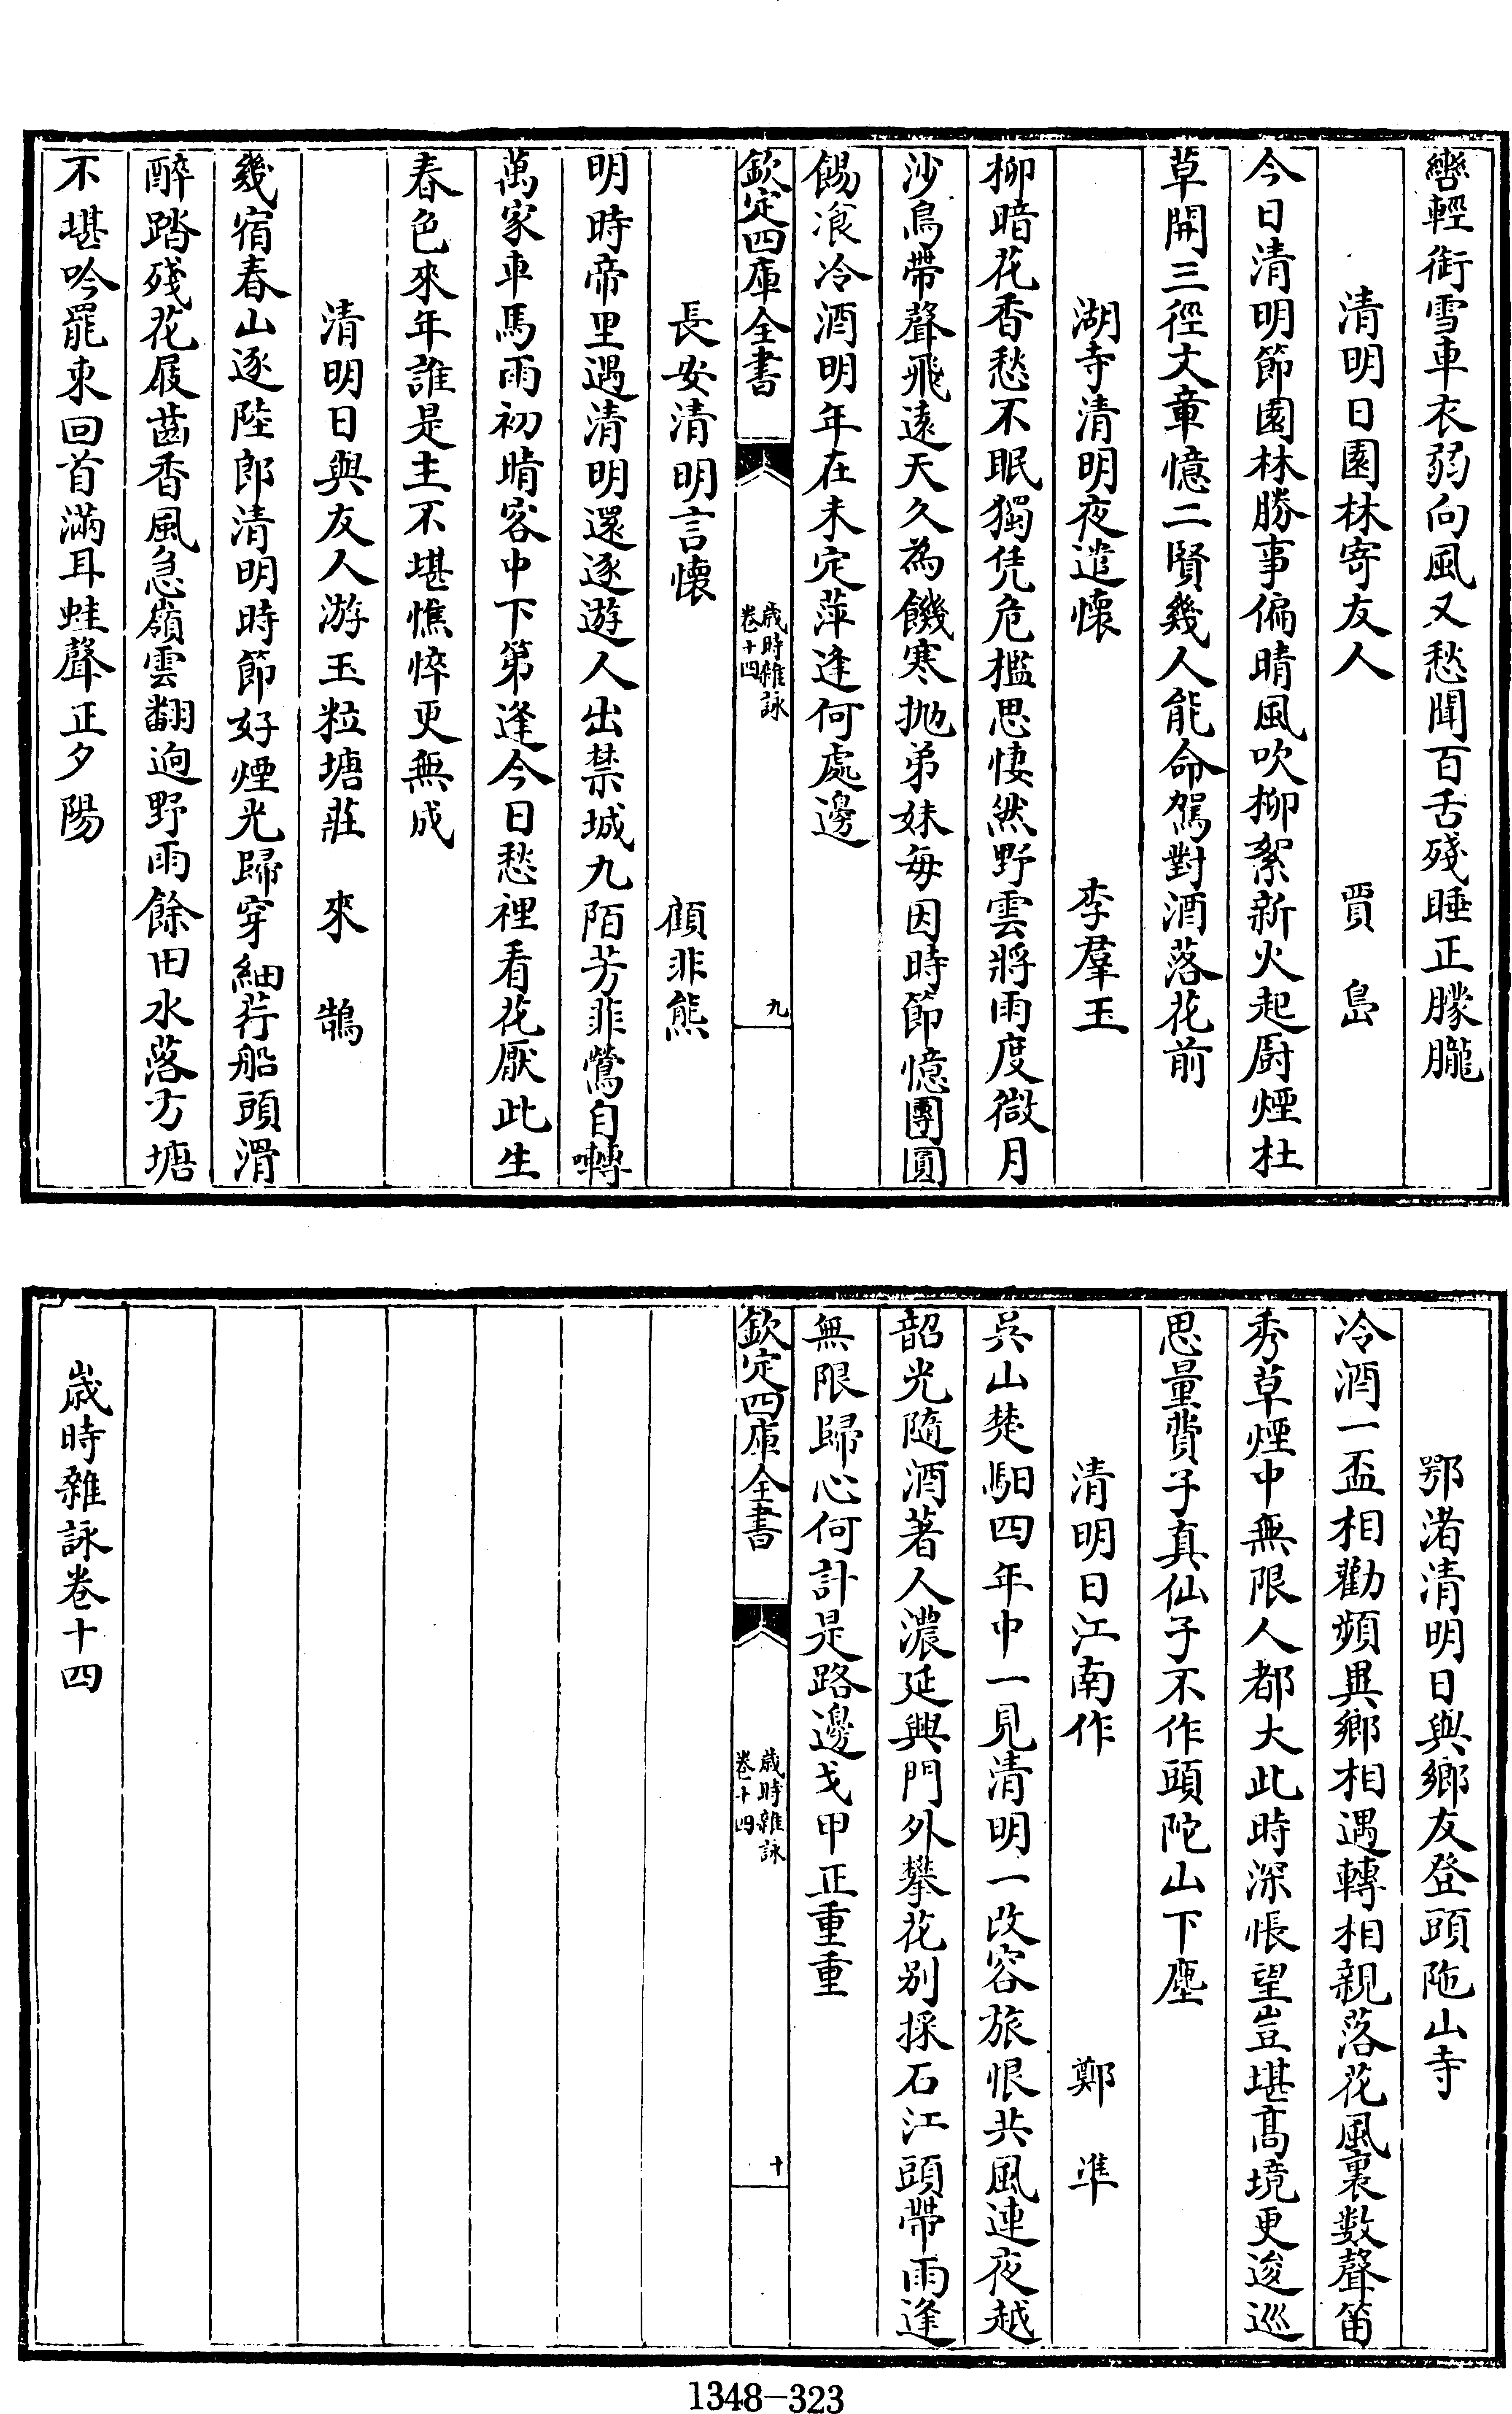 轡輕銜雪車衣弱向風又愁聞百舌殘睡正朦朧
清明日園林寄友人 賈 島
今日清明節園林勝事偏晴風吹柳絮新火起厨煙杜
草開三徑文章憶二賢幾人能命駕對酒落花前
湖寺清明夜遣懷 李羣玉
柳暗花香愁不眠獨凭危檻思悽然野雲將雨度微月
沙鳥帶聲飛遠天久為饑寒抛弟妹每因時節憶團圓
餳飡冷酒明年在未定萍逢何處邊
欽定四庫全書 歲時雜詠 卷十四 九
長安清明言懷 顧非熊
明時帝里遇清明還逐遊人出禁城九陌芳菲鶯自囀
萬家車馬雨初晴客中下第逢今日愁裡看花厭此生
春色來年誰是主不堪憔悴更無成
清明日與友人游玉粒塘莊 來 鵠
幾宿春山逐陸郎清明時節好煙光歸穿細荇船頭滑
醉踏殘花屐齒香風急嶺雲翻迥野雨餘田水落方塘
不堪吟罷東回首滿耳蛙聲正夕陽
鄂渚清明日與鄉友登頭陁山寺
冷酒一盃相勸頻異鄉相遇轉相親落花風裏数聲笛
秀草煙中無限人都大此時深悵望豈堪髙境更逡巡
思量費子真仙子不作頭陀山下塵
清明日江南作 鄭 準
吳山楚馹四年中一見清明一改容旅恨共風連夜越
韶光隨酒著人濃延興門外攀花别採石江頭帶雨逢
無限歸心何計是路邊戈甲正重重
欽定四庫全書 歲時雜詠 卷十四 十
歲時雜詠卷十四
1348-323